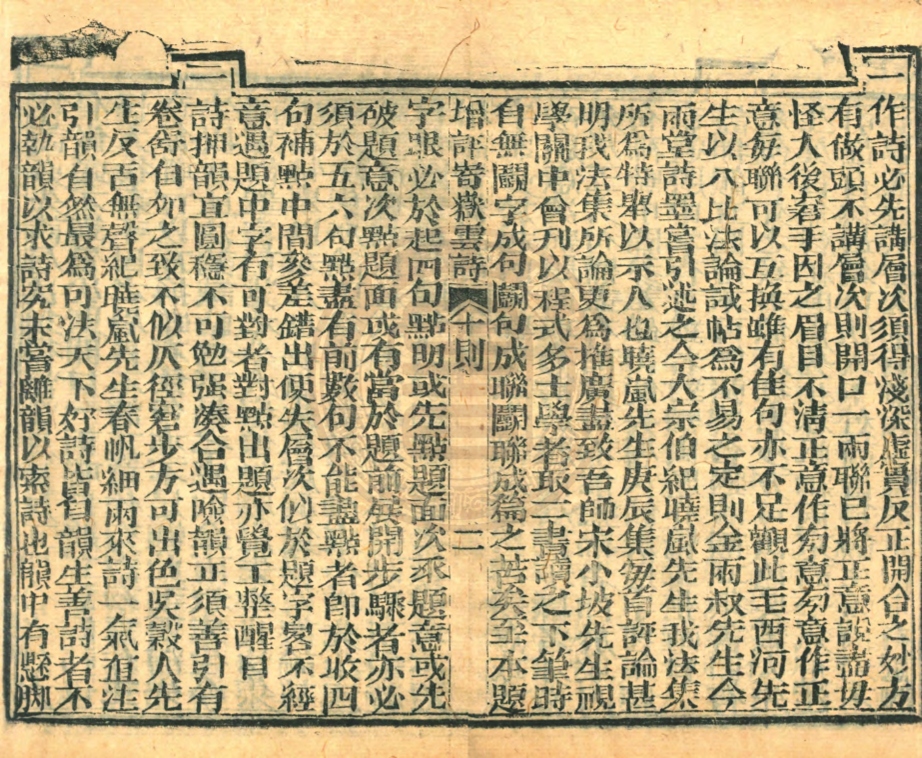 作詩必先講層次須得淺深虛實反正開合之妙方
有做頭不講層次則開口一兩聯已將正意說盡毋
怪人後窘手因之眉目不淸正意作旁意旁意作正
意每聯可以互換雖有佳句亦不足觀此毛西河先
生以八比法論試帖爲不易之定則金雨叔先生今
雨堂詩墨嘗引述之今大宗伯紀曉嵐先生我法集
所爲特舉以示人也曉嵐先生庚辰集每首評論甚
明我法集所論更爲推廣盡致吾師宋小坡先生視
學關中曾刋以程式多士學者取三書讀之下筆時
自無鬬字成句鬬句成聯鬬聯成篇之苦矣至本題
增評寄嶽雲詩 十則 二
字眼必於起四句點明或先點題面次釆題意或先
破題意次點題面或有當於題前展開步驟者亦必
須於五六句點盡有前數句不能盡點者卽於收四
句補點中間參差錯出便失層次例於題字畧不經
意遇題中字有可對者對點出題亦覺工整醒目
詩押韻宜圓穩不可勉强湊合遇險韻正須善引有
卷舒自如之致不似仄徑窘步方可出色吳穀人先
生反舌無聲紀曉嵐先生春帆細雨來詩一氣直注
引韻自然最爲可法天下好詩皆自韻生善詩者不
必執韻以求詩究未嘗離韻以索詩也韻中有懸脚